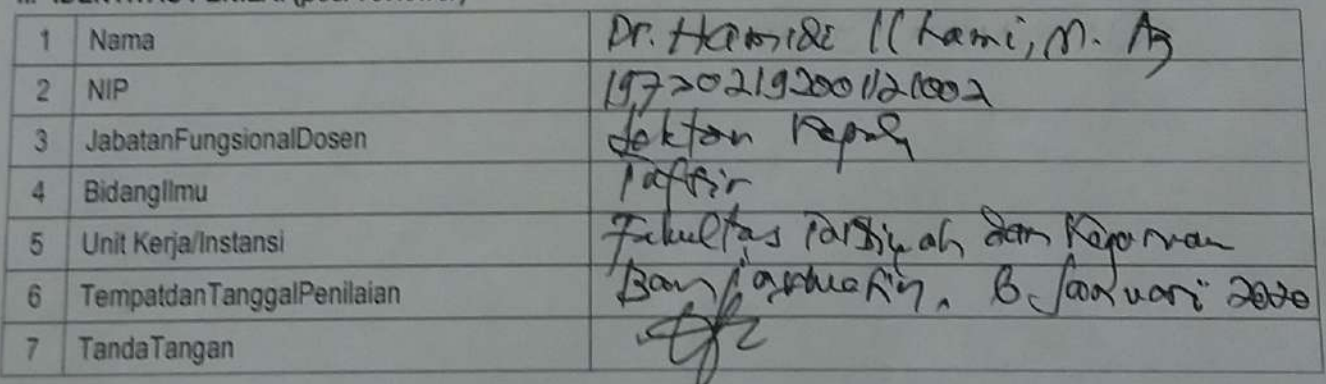 1 Nama Dr. Hamidi Ilhami, M. Ag
2 NIP 197302192001121002
3 JabatanFungsionalDosen Lektor Kepala
4 BidangIlmu Tafsir
5 Unit Kerja/Instansi Fakultas Tarbiyah dan Keguruan
6 TempatdanTanggalPenilaian Banjarmasin, 6 Januari 2020
7 TandaTangan